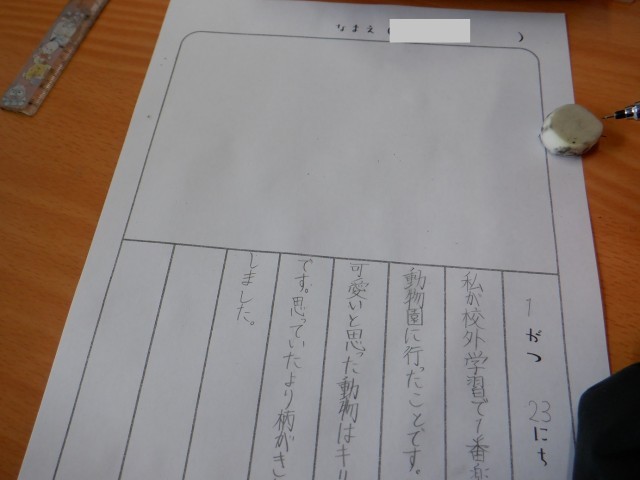 なまえ( )
1がつ 23にち
私が校外学習で1番楽
動物園に行ったことです。
可愛いと思った動物はキリ
です。思っていたより柄がき
しました。